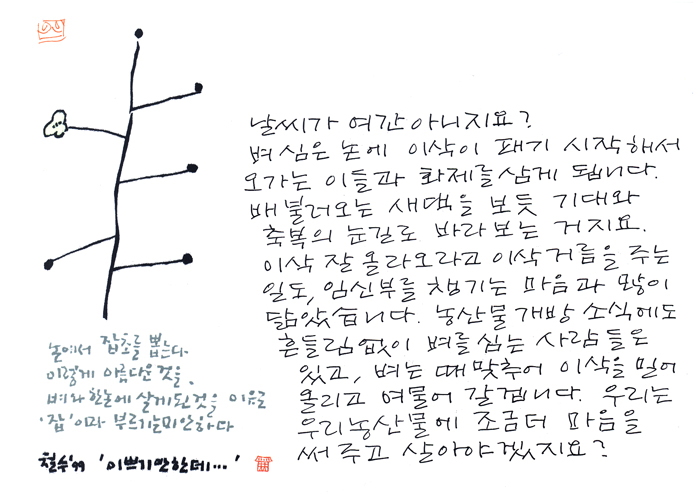 날씨가 여간 아니지요?
벼 심은 논에 이삭이 패기 시작해서
오가는 이들과 화제를 삼게 됩니다.
배 불러오는 새댁을 보듯 기대와
축복의 눈길로 바라보는 거지요.
이삭 잘 올라오라고 이삭거름을 주는
일도, 임신부를 챙기는 마음과 많이
닮았습니다. 농산물개방 소식에도
흔들림없이 벼를 심는 사람들은
있고, 벼는 때맞추어 이삭을 밀어
올리고 여물어 갈겁니다. 우리는
우리농산물에 조금더 마음을
써 주고 살아야겠지요?
논에서 잡초를 뽑는다.
이렇게 아름다운 것을,
벼와 한논에 살게된 것을 이유로
'잡'이라 부르기는 미안하다
철수'99 '이쁘기만한데...'